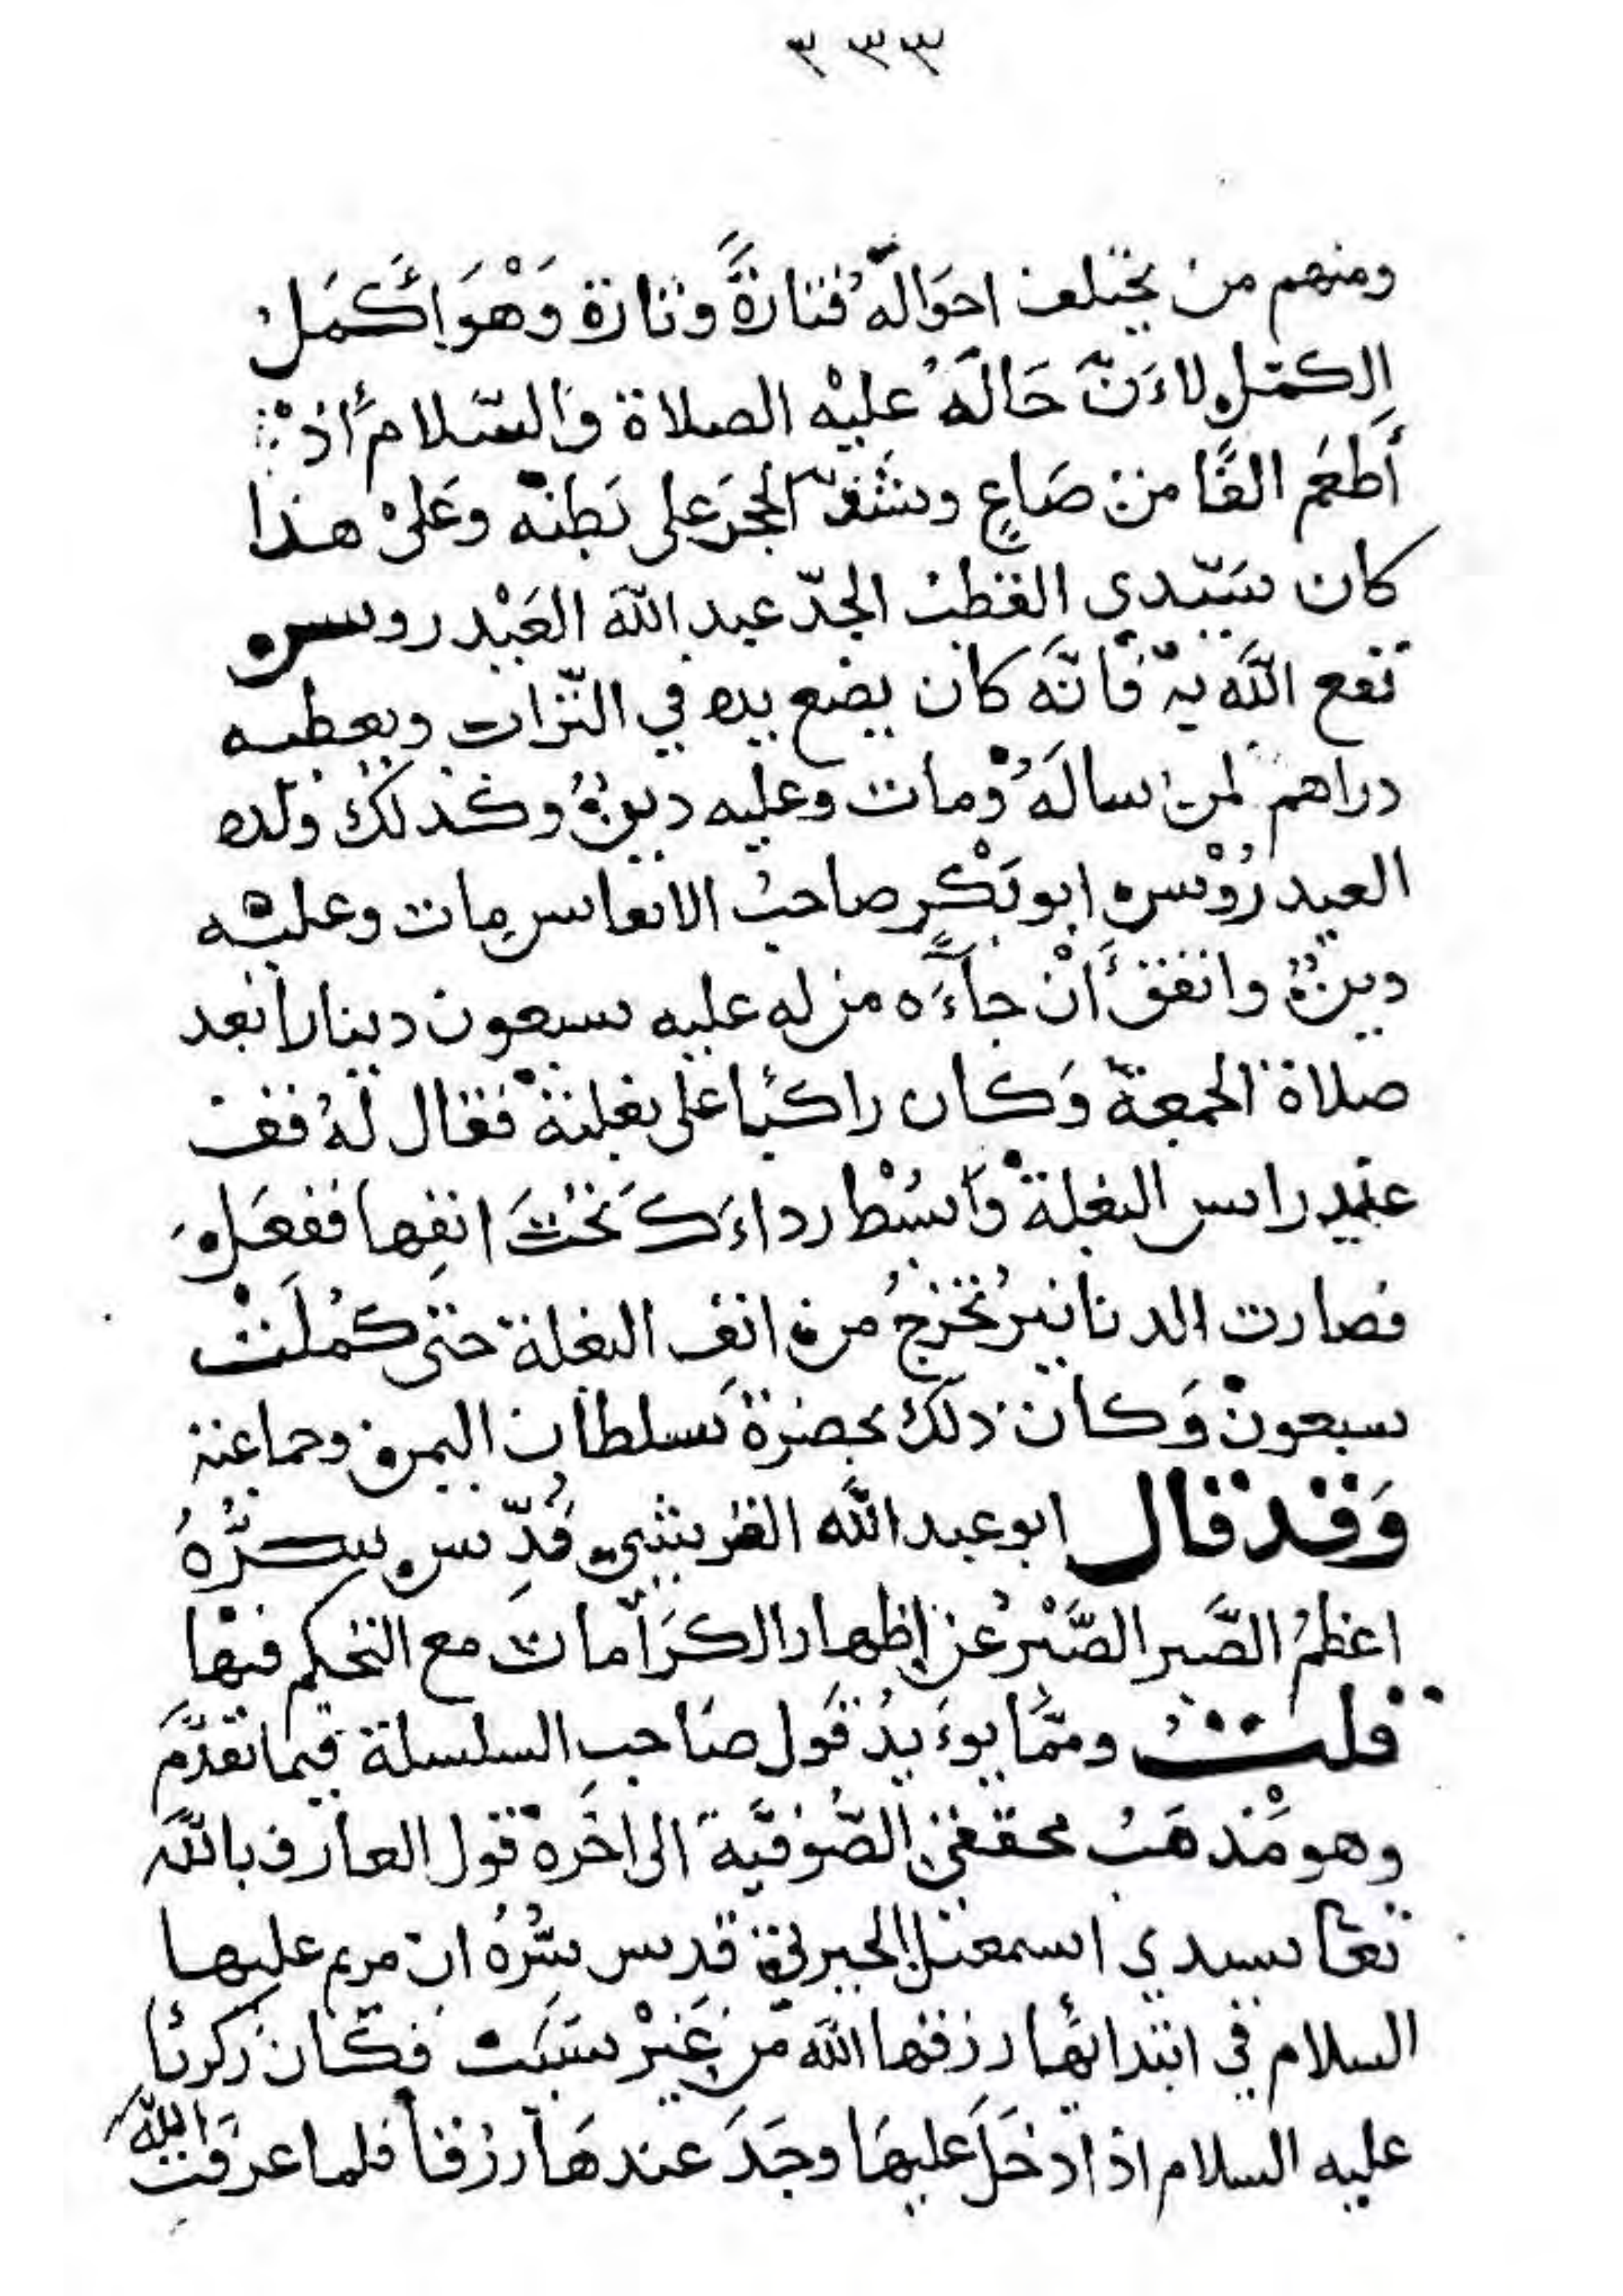 ٣٣٣
ومنهم من يختلف احوَالُهُ فتارةً وتارة وَهْوَ أَكمَلُ
الكمّلِ لاءَنّ حَالَهُ عليْه الصلاة والسّلام أذْ
أَطعَم الفًا من صَاعٍ وشَدّ الحجرَ على بَطنه وعَلىْ هذا
كان سَيّدي القطبُ الجدّ عبد الله العَيْدروس
نفع اللَّه بهْ فانَّه كان يضع يده في التّراب ويعطيه
دراهم لمن سالَهُ ومات وعليه دينٌ وكذلك ولده
العيدرُوْس ابو بَكْرٍ صاحبُ الانفاس مات وعليْه
دينٌ واتفق أَنْ جاءَه من له عليه سبعون دينارا بعد
صلاة الجمعة وَكان راكبا على بغلته فقال لهُ قف
عند راس البغلة وَابسُطْ رداءَكَ تَحْتَ انفِها ففعَلَ
فصارت الدنانيرُ تخرجُ من انفِ البغلة حتى كمُلَتْ
سبعون وَكان ذلك بحضرة سلطان اليمن وجماعة
وَقد قال ابو عبد اللَّه القرشي قُدِّس سِرُّهُ
اعظمُ الصَّبر الصَّبْرُ عن إظهار الكرَامات مع التحكم فيها
قلتُ وممّا يوءَيدُ قَول صَاحبِ السلسلة فيما تقدَّم
وهو مَذهَبُ محققي الصُّوفيَّة الى اخره قول العارف بالله
تعا سيدي اسمعيل الجبرتي قدس سِرُّهُ ان مريم عليها
السلام في ابتدائها رزقها اللَّه من غَيْر سَبَبٍ فكان زكريّا
عليه السلام اذا دخَلَ عليهَا وجَدَ عندهَا رزقا فلما عرفتِ اللَّهَ